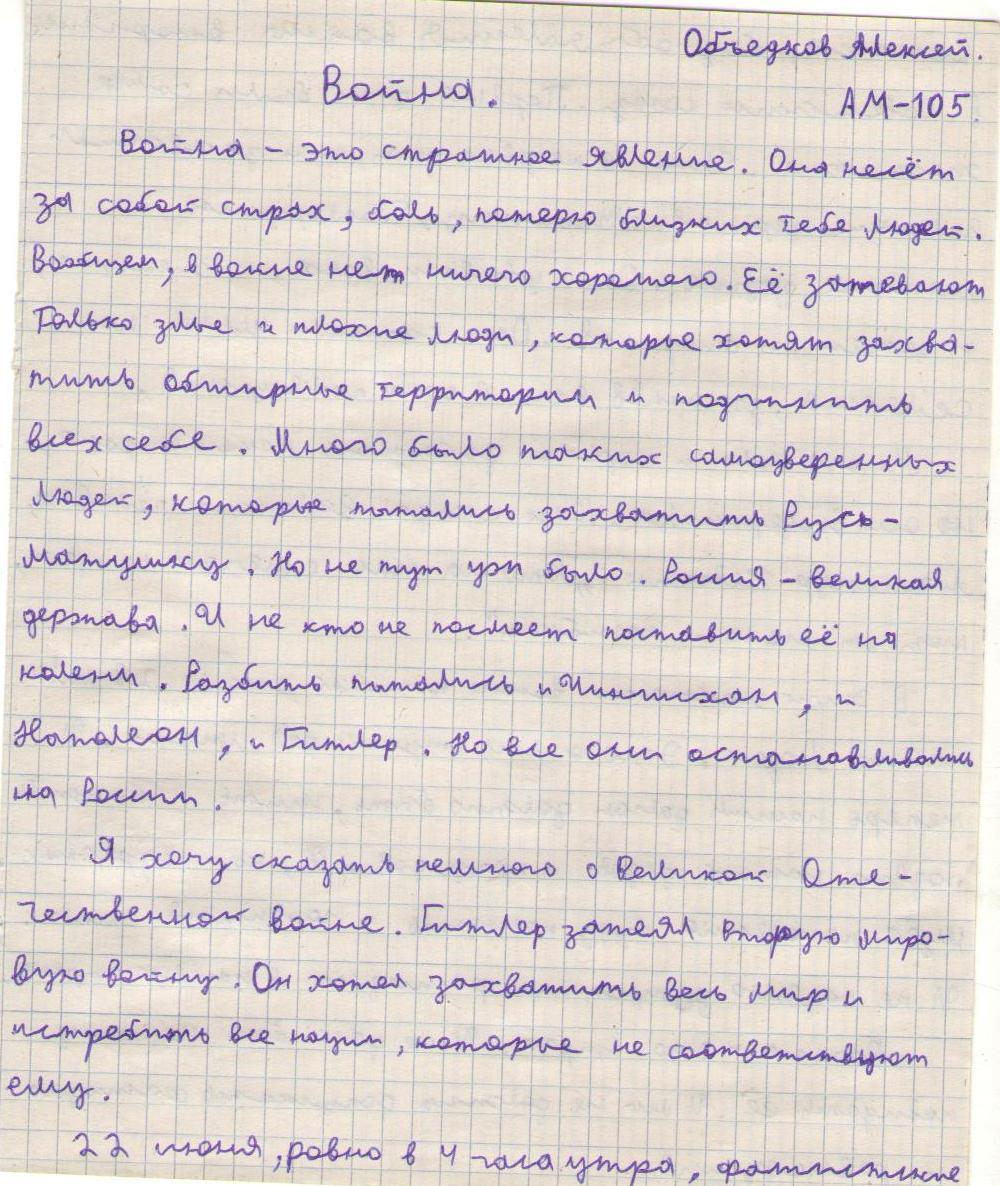 Объедков Алексей.
Война.
АМ-105.
Война - это страшное явление. Она несёт
за собой страх, боль, потерю близких тебе людей.
Вообщем, в войне нет ничего хорошего. Её затевают
только злые и плохие люди, которые хотят захва-
тить обширные территории и подчинить
всех себе. Много было таких самоуверенных
людей, которые пытались захватить Русь-
матушку. Но не тут уж было. Россия - великая
держава. И не кто не посмеет поставить её на
колени. Разбить пытались и Чингисхан, и
Наполеон, и Гитлер. Но все они останавливались
на России.
Я хочу сказать немного о Великой Оте-
чественной войне. Гитлер затеял вторую миро-
вую войну. Он хотел захватить весь мир и
истребить все нации, которые не соответствуют
ему.
22 июня, ровно в 4 часа утра, фашистские